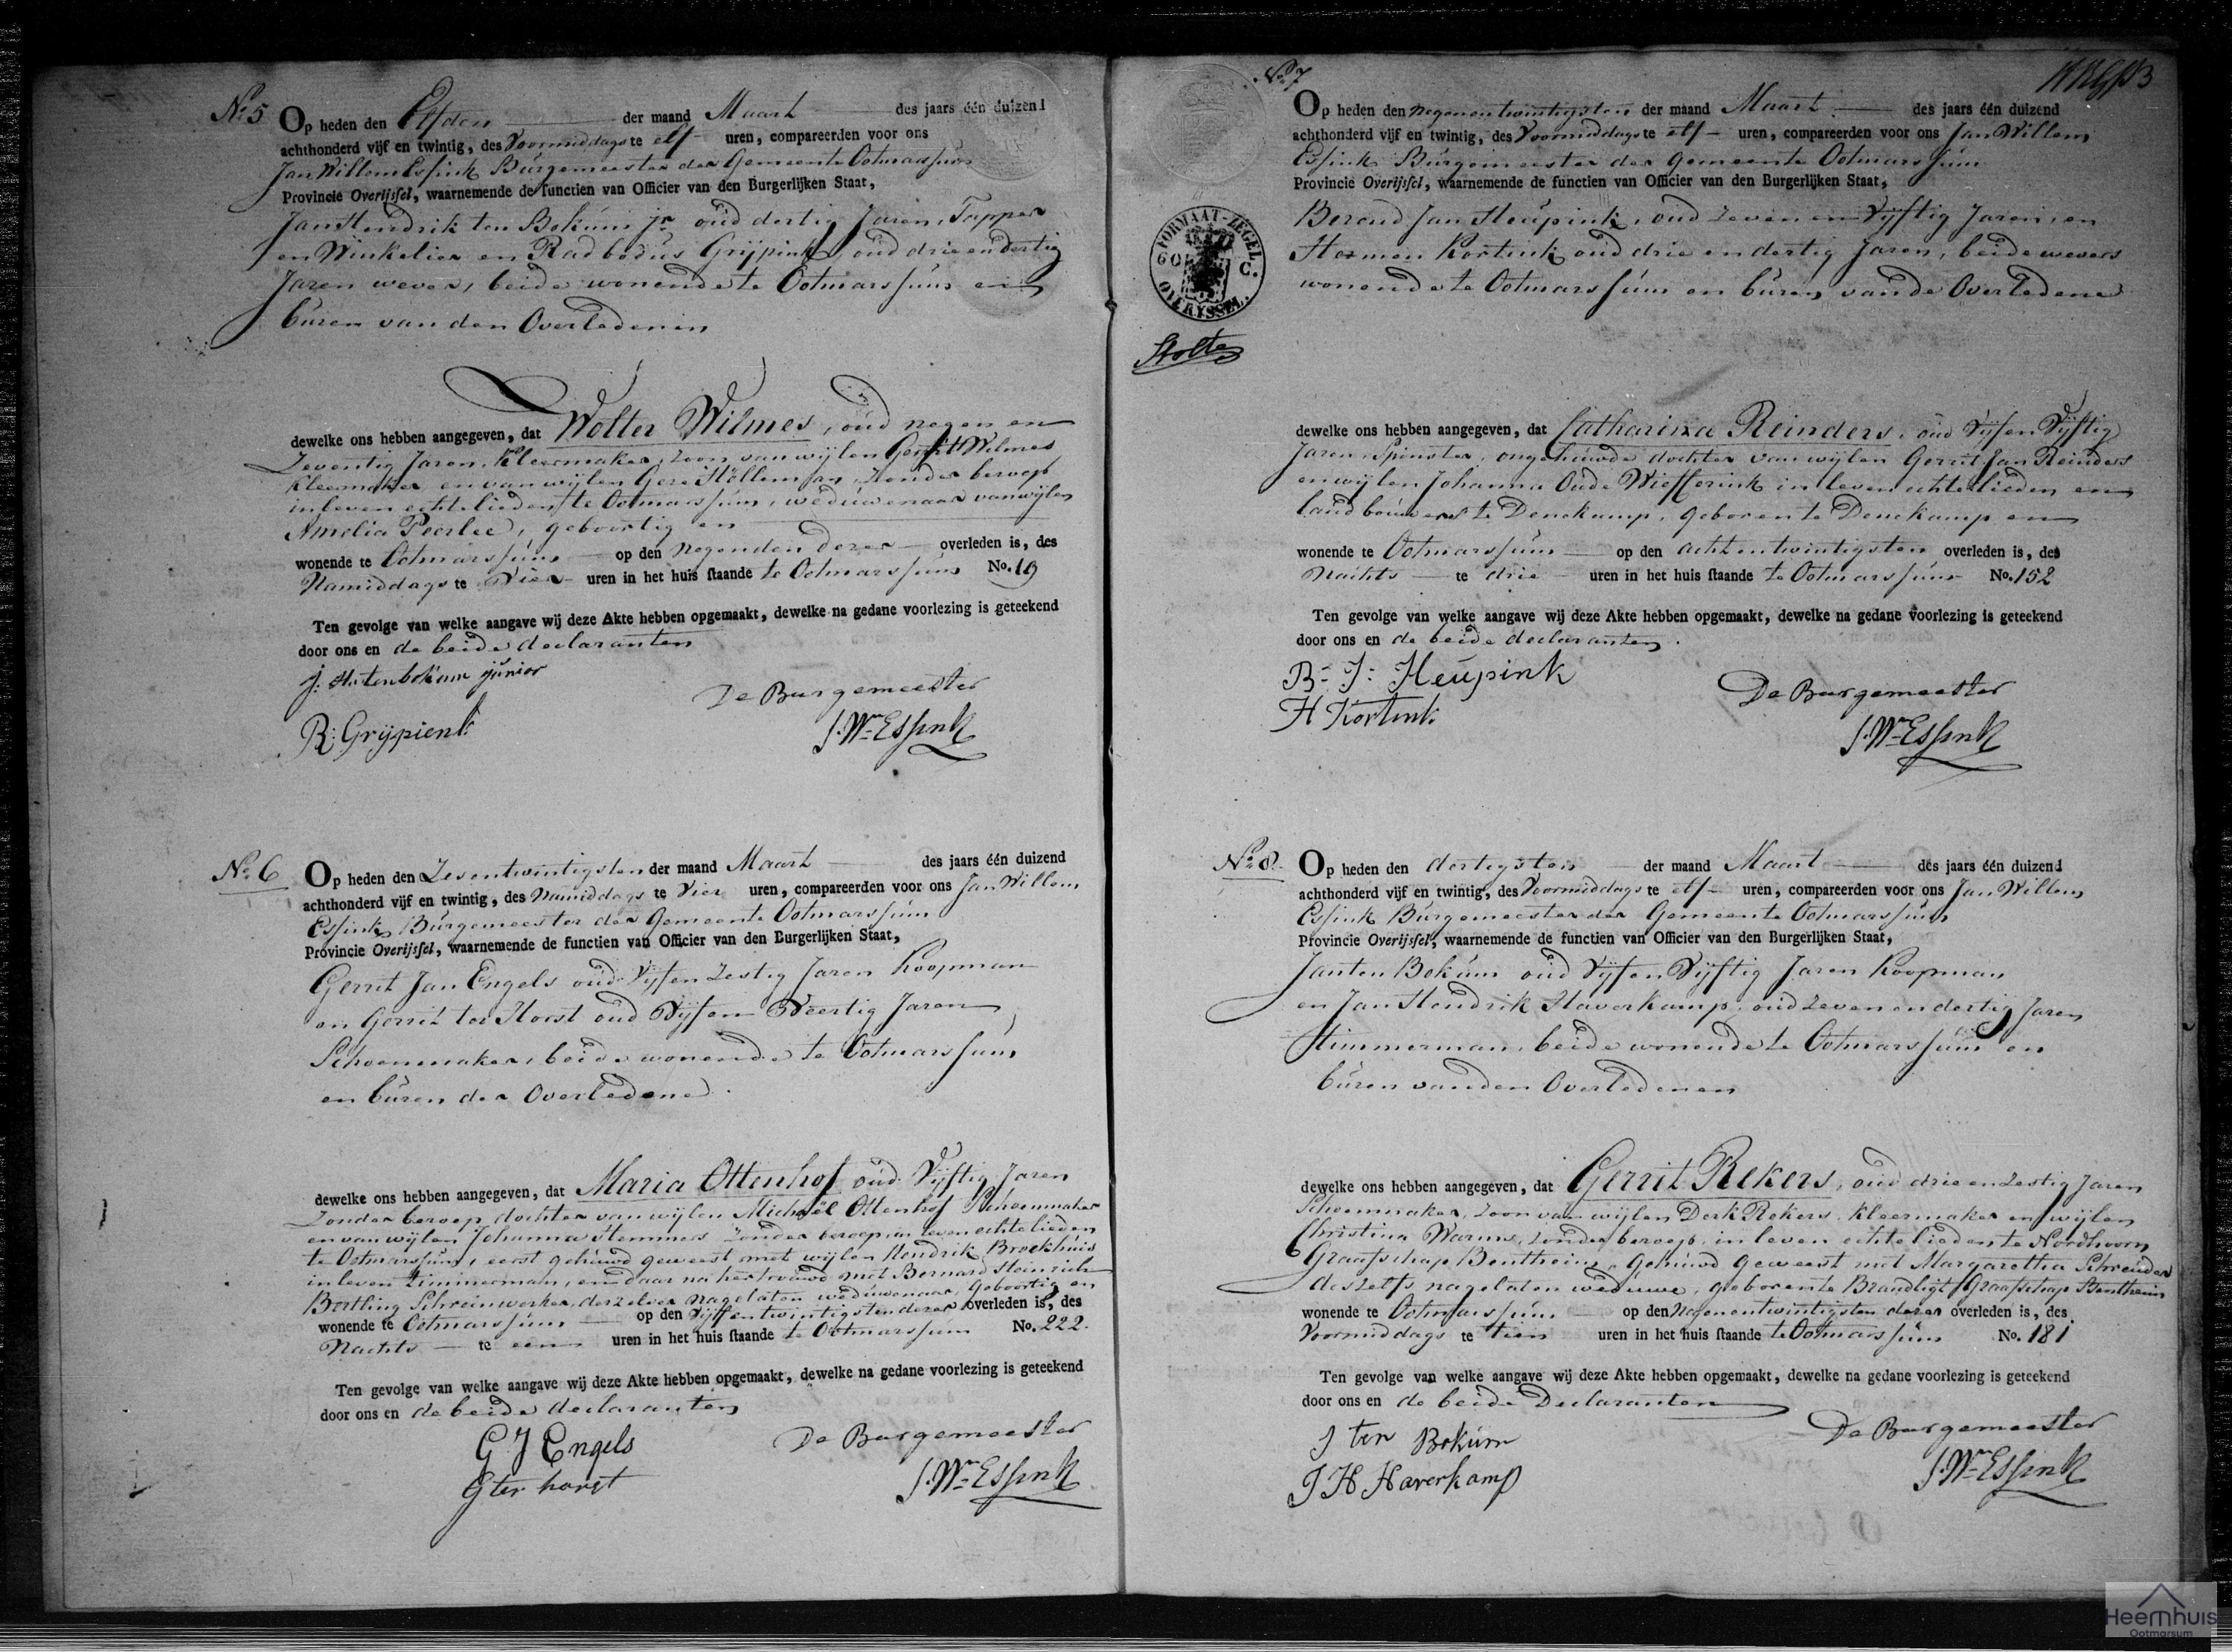 No 5 Op heden den Elfden der maand Maart des jaars één duizend
achthonderd vijf en twintig, des Voormiddags te elf uren, compareerden voor ons
Jan Willem Essink Burgemeester der Gemeente Ootmarssum
Provincie Overijssel, waarnemende de functien van Officier van den Burgerlijken Staat,
Jan Hendrik ten Bokum jr oud dertig Jaren, Tapper
en Winkelier en Radbodus Grijpink, oud drie en dertig
Jaren wever, beide wonende te Ootmarssum en
buren van den Overledenen
dewelke ons hebben aangegeven, dat Wolter Wilmes, oud negen en
Zeventig Jaren, Kleermaker, zoon van wijlen Gerrit Wilmes
Kleermaker en van wijlen Gere Hölleman, zonder beroep
in leven echtelieden te Ootmarssum, weduwenaar van wijlen
Amelia Peerlee, geboortig en
wonende te Ootmarssum op den negenden dezer overleden is, des
Namiddags te Vier uren in het huis staande te Ootmarssum No. 19
Ten gevolge van welke aangave wij deze Akte hebben opgemaakt, dewelke na gedane voorlezing is geteekend
door ons en de beide declaranten
J: H: ten bokum junior
De Burgemeester
R: Grijpienk
J. Wm Essink
No 6 Op heden den Zesentwintigsten der maand Maart des jaars één duizend
achthonderd vijf en twintig, des Namiddags te Vier uren, compareerden voor ons Jan Willem
Essink, Burgemeester der Gemeente Ootmarssum
Provincie Overijssel, waarnemende de functien van Officier van den Burgerlijken Staat,
Gerrit Jan Engels oud Vijfen Zestig Jaren Koopman
en Gerrit ter Horst oud Vijfen Veertig Jaren
Schoenmaker, beide wonende te Ootmarssum
en buren der Overledene.
dewelke ons hebben aangegeven, dat Maria Ottenhof oud Vijftig Jaren
Zonder beroep, dochter van wijlen Michaël Ottenhof Schoenmaker
en van wijlen Johanna Stemmers zonder beroep, in leven echtelieden
te Ootmarssum, eerst gehuwd geweest met wijlen Hendrik Broekhuis
in leven Timmerman, en daar na hertrouwd met Bernard Heinrich
Bertling Schreinwerker, derzelver nagelaten weduwenaar, Geboortig en
wonende te Ootmarssum op den Vijffentwintigsten dezer overleden is, des
Nachts te een uren in het huis staande te Ootmarssum No. 222.
Ten gevolge van welke aangave wij deze Akte hebben opgemaakt, dewelke na gedane voorlezing is geteekend
door ons en de beide declaranten
G J Engels
De Burgemeester
G ter horst
J. Wm Essink
No 7
Op heden den negenentwintigsten der maand Maart des jaars één duizend
achthonderd vijf en twintig, des Voormiddags te elf uren, compareerden voor ons Jan Willem
Essink Burgemeester der Gemeente Ootmarssum
Provincie Overijssel, waarnemende de functien van Officier van den Burgerlijken Staat,
Berend Jan Heupink, oud zeven en Vijftig Jaren, en
Hermen Kortink oud drie en dertig Jaren, beide wevers
wonende te Ootmarssum en buren van de Overledene
FORMAAT-ZEGEL
60 C.
OVERYSSEL.
Stolte
dewelke ons hebben aangegeven, dat Catharina Reinders, oud Vijfen Vijftig
Jaren, Spinster, ongehuwde dochter van wijlen Gerrit Jan Reinders
en wijlen Johanna Oude Wiefferink in leven echtelieden en
landbouwers te Denekamp, geboren te Denekamp en
wonende te Ootmarssum op den achtentwintigsten overleden is, des
Nachts te drie uren in het huis staande te Ootmarssum No. 152
Ten gevolge van welke aangave wij deze Akte hebben opgemaakt, dewelke na gedane voorlezing is geteekend
door ons en de beide declaranten.
B: J: Heupink
De Burgemeester
H Kortink
J. Wm Essink
No 8. Op heden den dertigsten der maand Maart des jaars één duizend
achthonderd vijf en twintig, des Voormiddags te elf uren, compareerden voor ons Jan Willem
Essink Burgemeester der Gemeente Ootmarssum
Provincie Overijssel, waarnemende de functien van Officier van den Burgerlijken Staat,
Jan ten Bokum oud Vijfen Vijftig Jaren Koopman
en Jan Hendrik Haverkamp, oud zeven en dertig Jaren
Timmerman, beide wonende te Ootmarssum en
buren van den Overledenen
dewelke ons hebben aangegeven, dat Gerrit Rekers, oud drie en zestig Jaren
Schoenmaker, zoon van wijlen Derk Rekers, Kleermaker en wijlen
Christina Warms, zonder beroep, in leven echtelieden te Nordhoorn
Graafschap Bentheim, Gehuwd geweest met Margaretha Schreuder
deszelfs nagelaten weduwe, geboren te Brandligt Graafschap Bentheim
wonende te Ootmarssum op den Negenentwintigsten dezer overleden is, des
Voormiddags te tien uren in het huis staande te Ootmarssum No. 181
Ten gevolge van welke aangave wij deze Akte hebben opgemaakt, dewelke na gedane voorlezing is geteekend
door ons en de beide Declaranten
J ten Bokum
De Burgemeester
J H Haverkamp
J. Wm Essink
Heemhuis
Ootmarsum